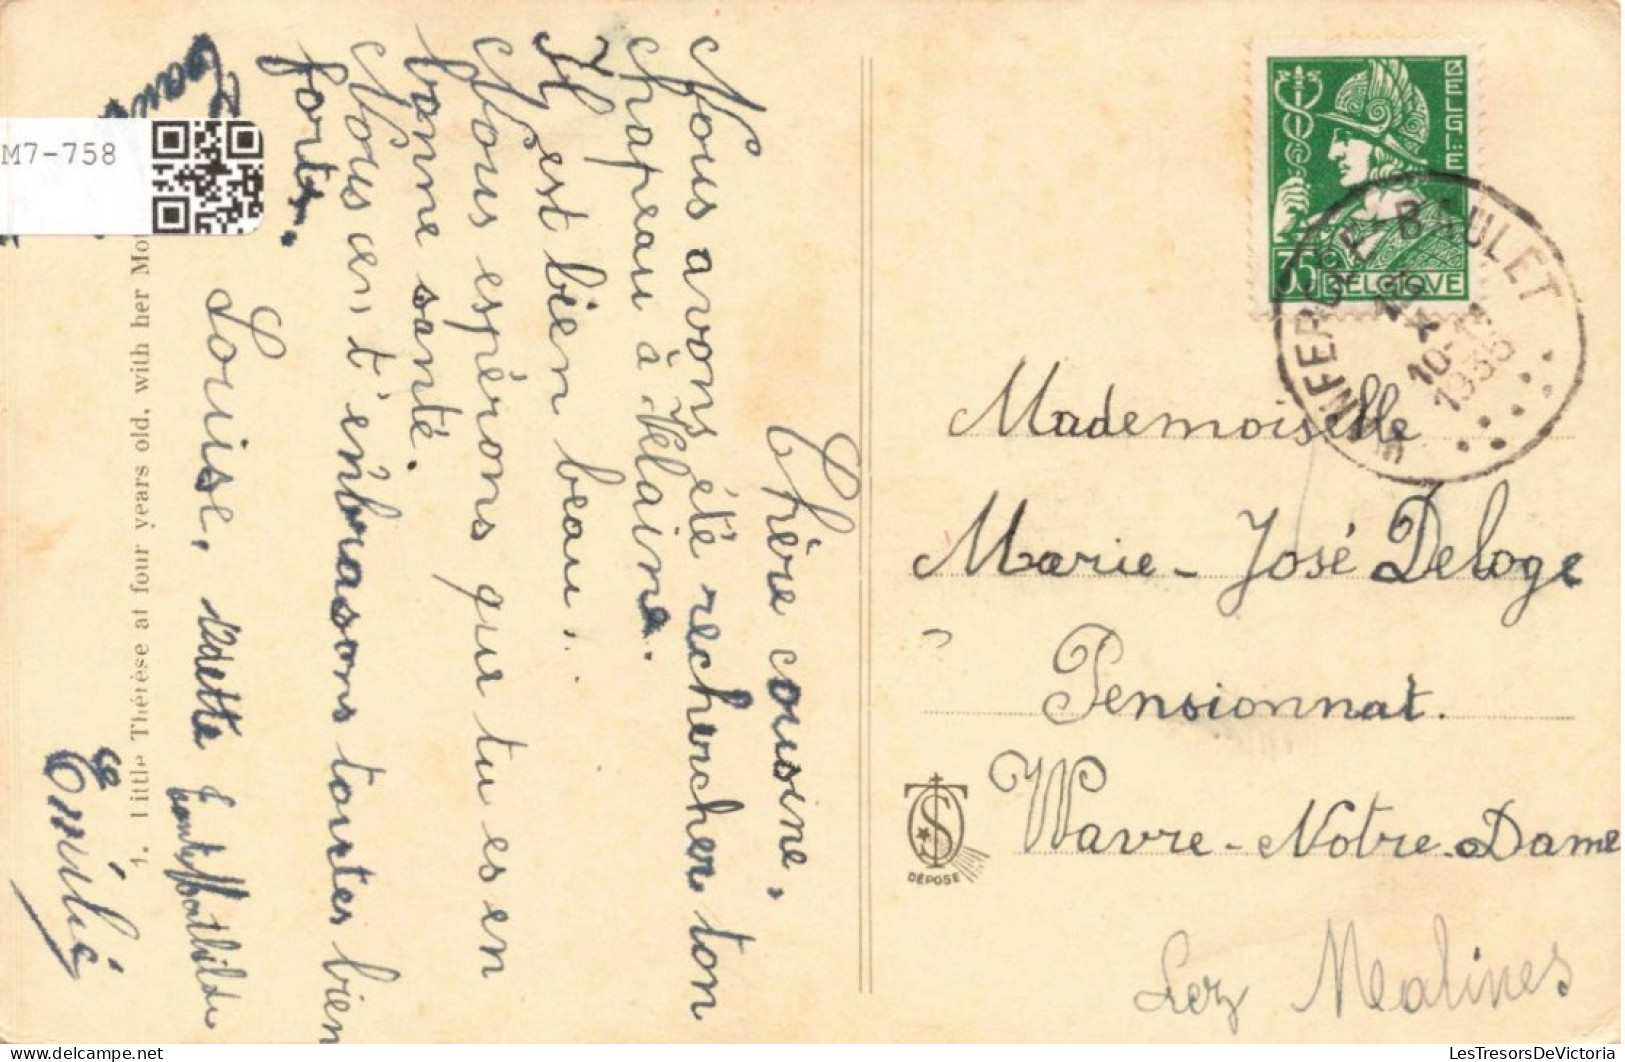 Chère cousine,
Nous avons été rechercher ton
chapeau à Velaine.
Il est bien beau.
Nous espérons que tu es en
bonne santé.
Nous cen t'embrasons toutes bien
fortes.
Louise,
Emilie
1. Little Thérèse at four years old, with her Mo
M7-758
BELGIE
35 BELGIQUE
WANFERCEE-BAULET
10-11
1935
Mademoiselle
Marie-José Deloge
Pensionnat.
Wavre-Notre-Dame
Lez Malines
DÉPOSE
LesTresorsDeVictoria